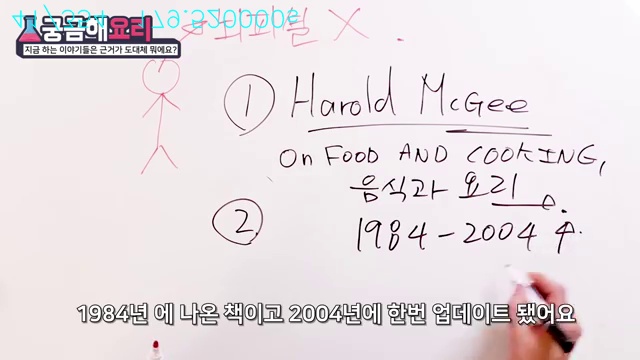 궁금해요리
지금 하는 이야기들은 근거가 도대체 뭐에요?
X.
① Harold McGee
ON FOOD AND COOKING,
음식과 요리
② 1984-2004
1984년 에 나온 책이고 2004년에 한번 업데이트 됐어요